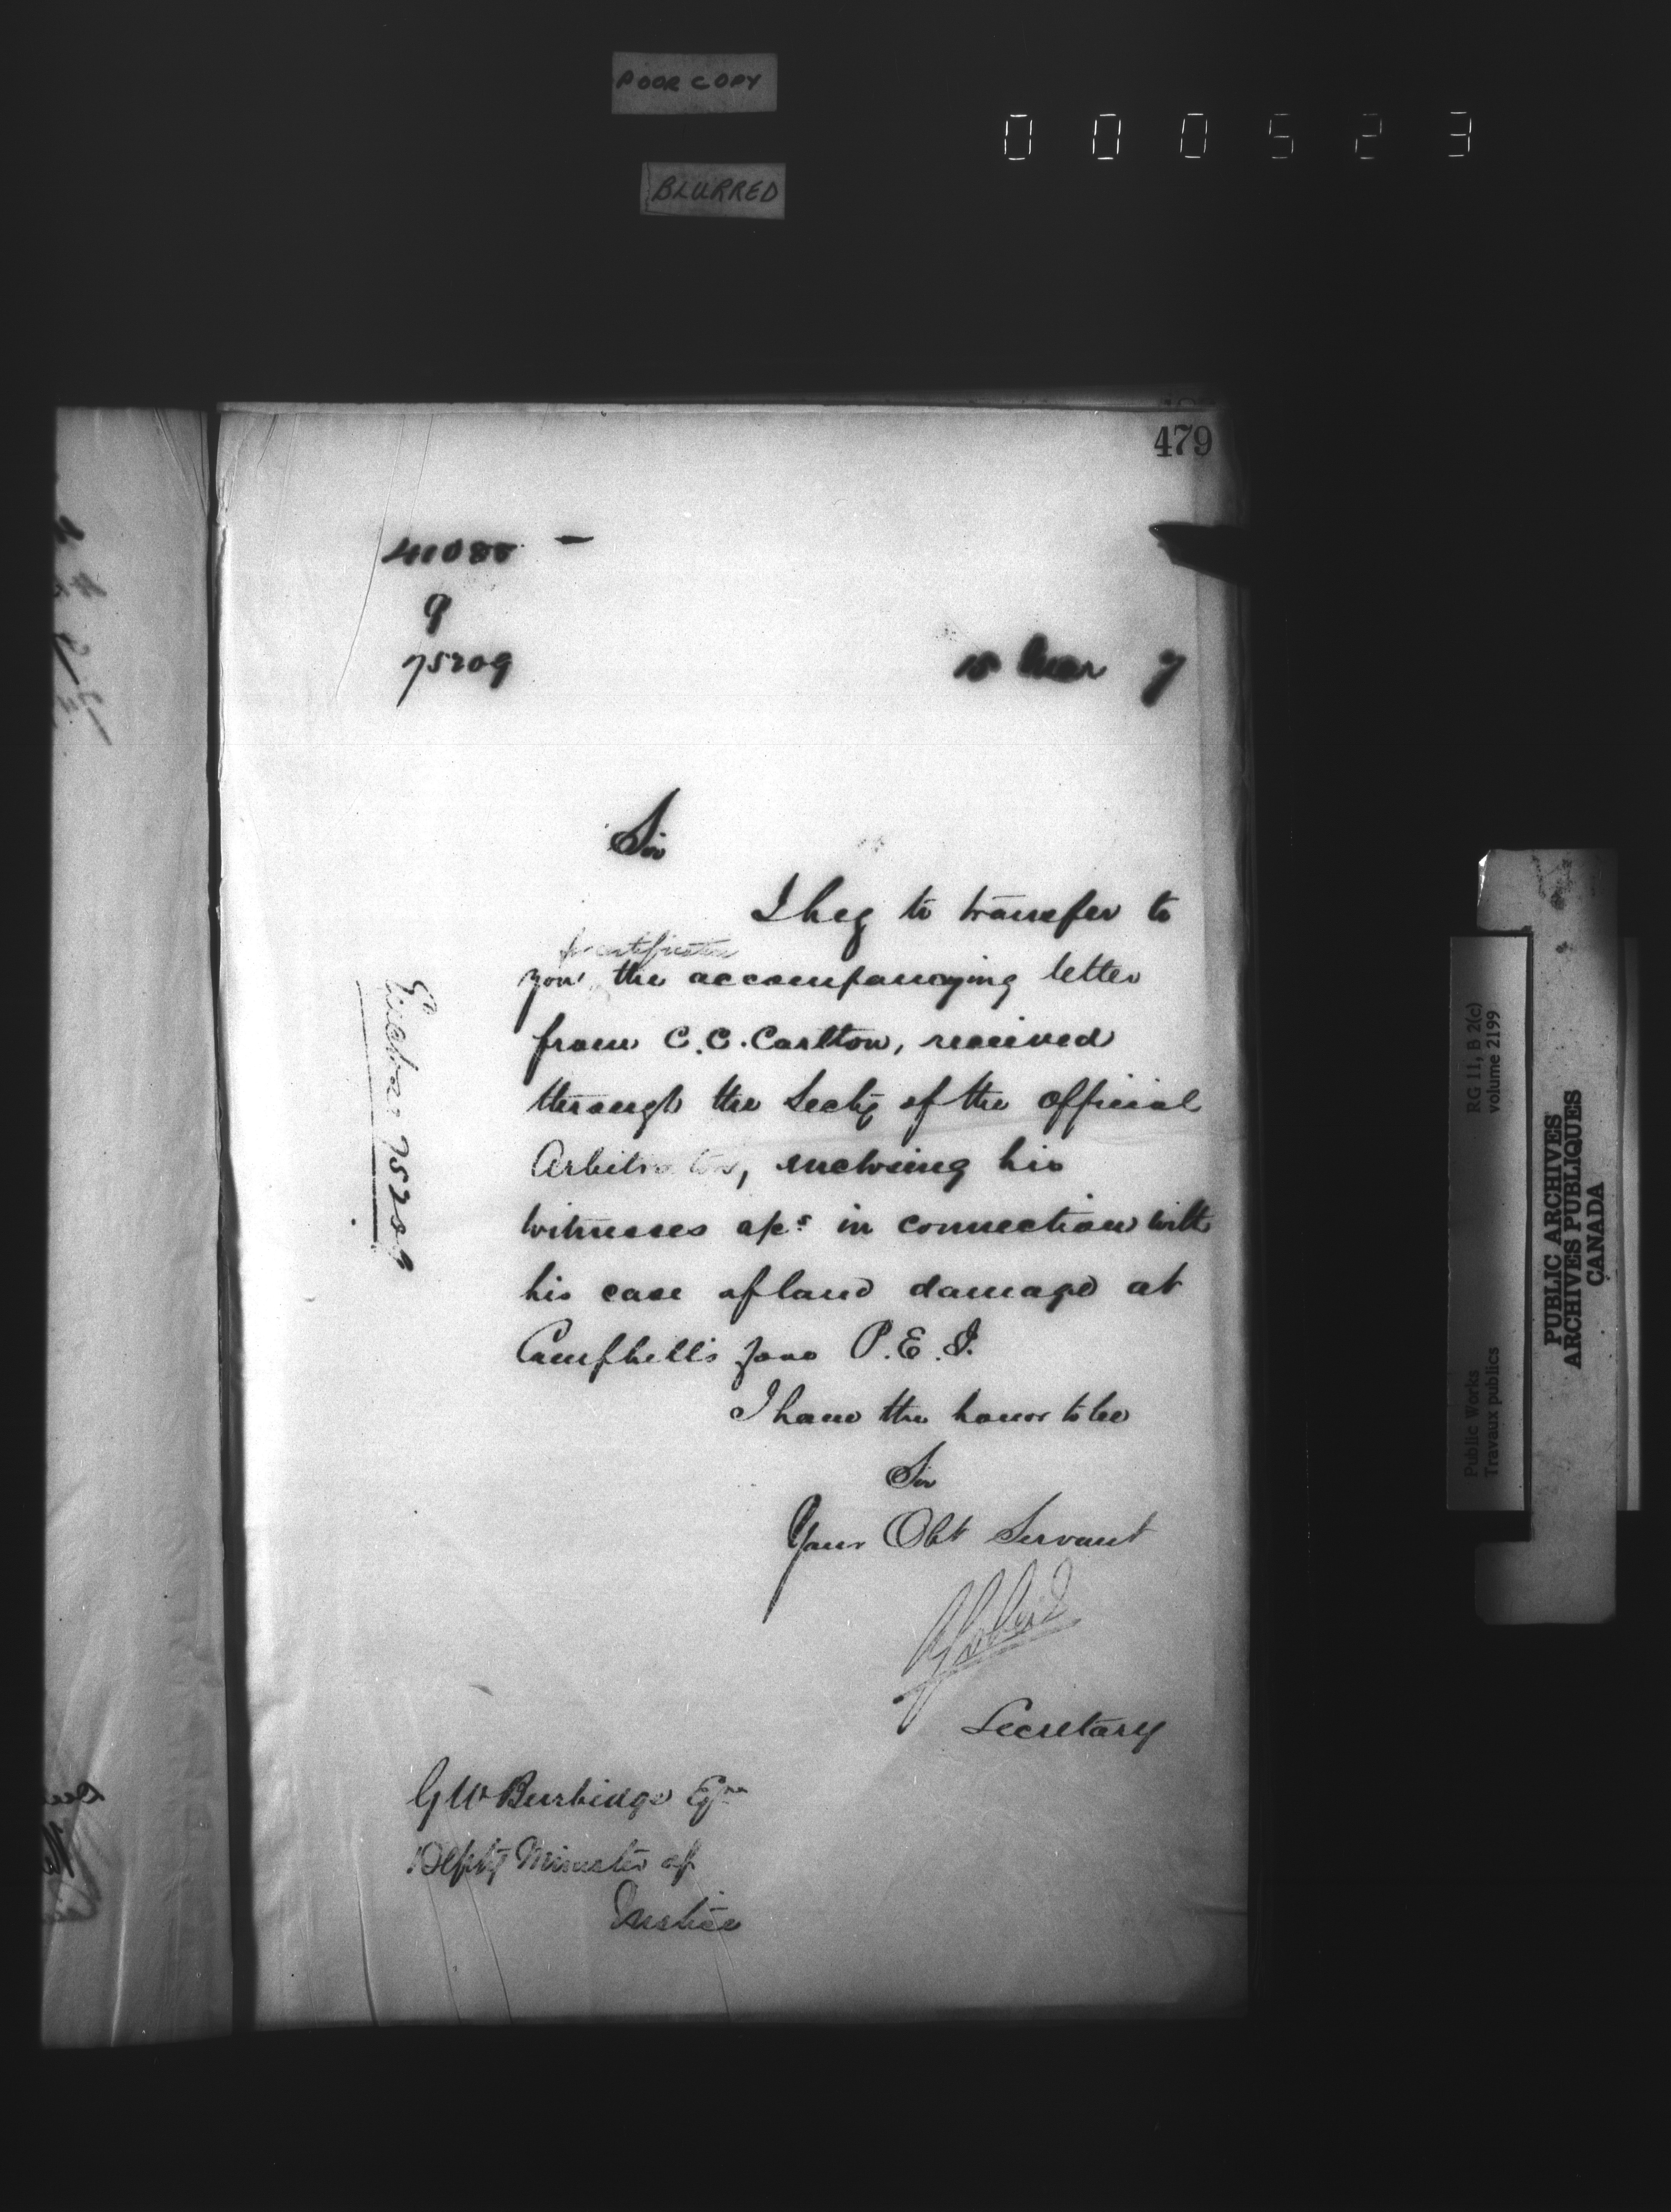 POOR COPY
BLURRED
000523
479
41088 –
9
75209
15 Mar 7
Sir
I beg to transfer to
for certification
you, the accompanying letter
from C.C. Carlton, received
through the Secty of the Official
Arbitrators, enclosing his
witnesses aps in connection with
his case of land damage at
Campbell's P.E.I.
I have the honor to be
Sir
Your Obt Servant
Secretary
G W Burbidge Esqre
Depty Minister of
Justice
75209
RG 11, B 2(c)
volume 2199
Public Works
Travaux publics
PUBLIC ARCHIVES
ARCHIVES PUBLIQUES
CANADA